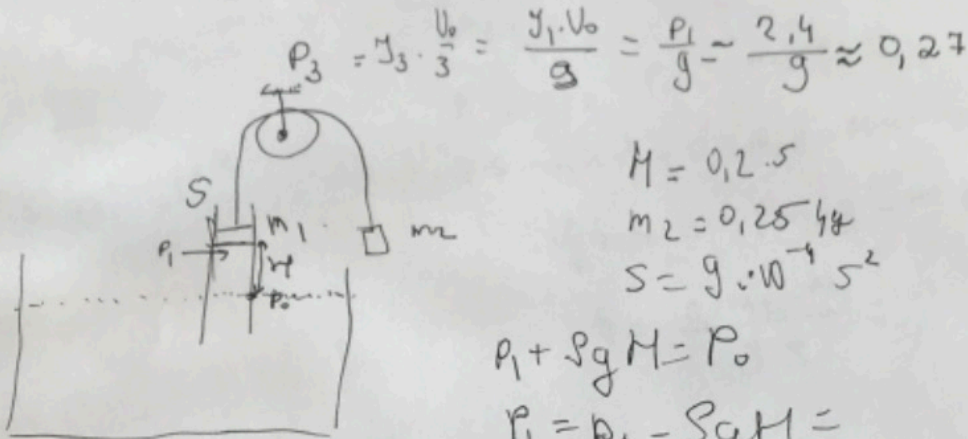 P₃ = I₃ · U₀/3 = I₁·U₀/9 = P₁/9 - 2,4/9 ≈ 0,27
S
m₁
m₂
P₁
H
P₀
H = 0,2
m₂ = 0,25
S = 9·10⁻⁴
P₁ + ρgH = P₀
P₁ = P₀ - ρgH =